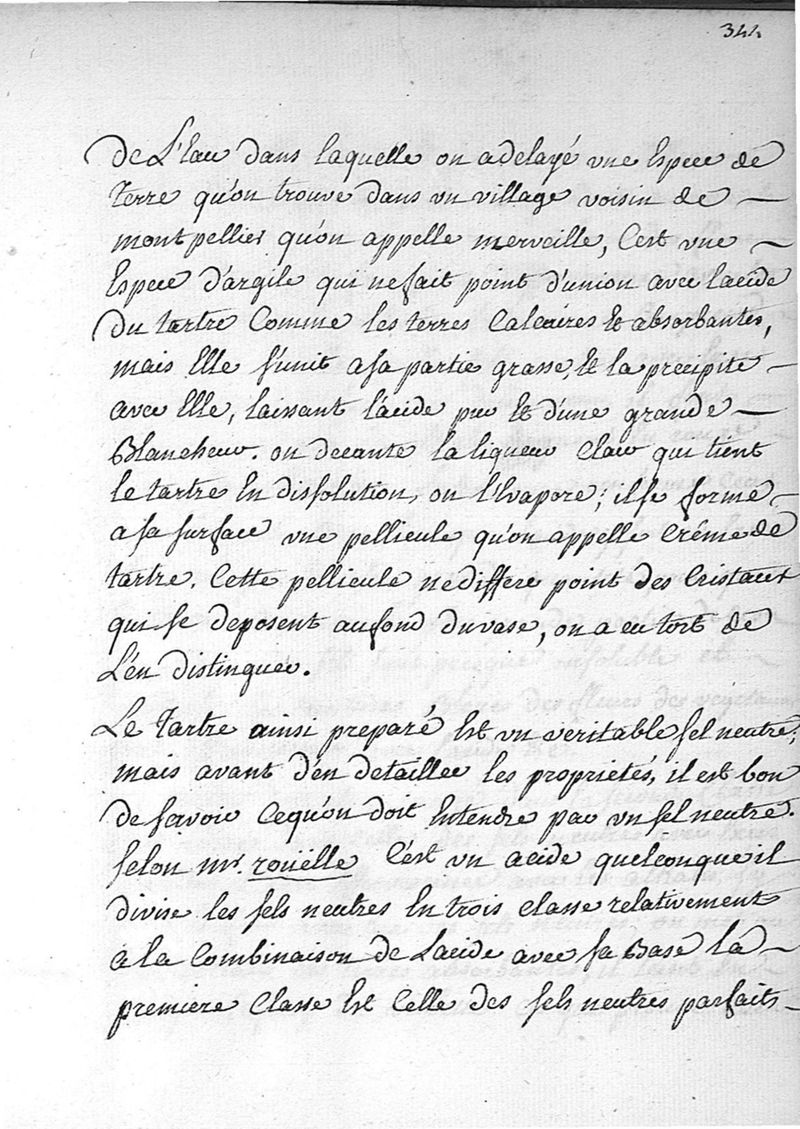 344
de L'Eau dans laquelle on a delayé vne Espece de
Terre qu'on trouve dans vn village voisin de
montpellier qu'on appelle merveille, C'est vne
Espece d'argile qui ne fait point d'union avec lacide
du tartre Comme les terres Calcaires et absorbantes,
mais Elle s'unit a sa partie grasse, et la precipite
avec Elle, laissant l'acide pur et d'une grande
Blancheur. on decante la liqueur Claire qui tient
le tartre En dissolution, on l'Evapore; il se forme
a sa surface vne pellicule qu'on appelle Créme de
tartre. Cette pellicule ne differe point des Cristaux
qui se deposent au fond du vase, on a eu tort de
L'en distinguer.
Le Tartre ainsi preparé Est vn veritable sel neutre;
mais avant d'en detailler les proprietés, il est bon
de savoir Cequ'on doit Entendre par vn sel neutre.
selon mr. rouëlle C'est vn acide quelconque il
divise les sels neutres En trois classe relativement
à la Combinaison de Lacide avec sa Base la
premiere Classe Est Celle des sels neutres parfaits